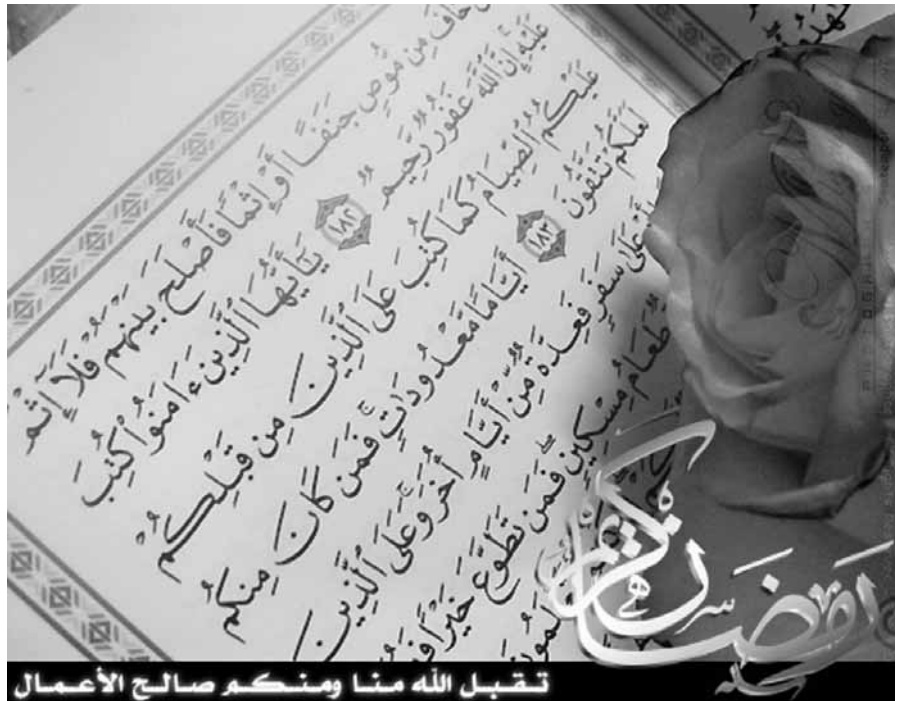 خَافَ مِن مُّوصٍ جَنَفًا أَوْ إِثْمًا فَأَصْلَحَ بَيْنَهُمْ فَلَآ إِثْمَ
عَلَيْهِ إِنَّ ٱللَّهَ غَفُورٌ رَّحِيمٌ ١٨٢ يَٰٓأَيُّهَا ٱلَّذِينَ ءَامَنُوا۟ كُتِبَ
عَلَيْكُمُ ٱلصِّيَامُ كَمَا كُتِبَ عَلَى ٱلَّذِينَ مِن قَبْلِكُمْ
لَعَلَّكُمْ تَتَّقُونَ ١٨٣ أَيَّامًا مَّعْدُودَٰتٍ ۚ فَمَن كَانَ مِنكُم
عَلَىٰ سَفَرٍ فَعِدَّةٌ مِّنْ أَيَّامٍ أُخَرَ ۚ وَعَلَى ٱلَّذِينَ
طَعَامُ مِسْكِينٍ ۖ فَمَن تَطَوَّعَ خَيْرًا
رمضان كريم
تقبل الله منا ومنكم صالح الأعمال